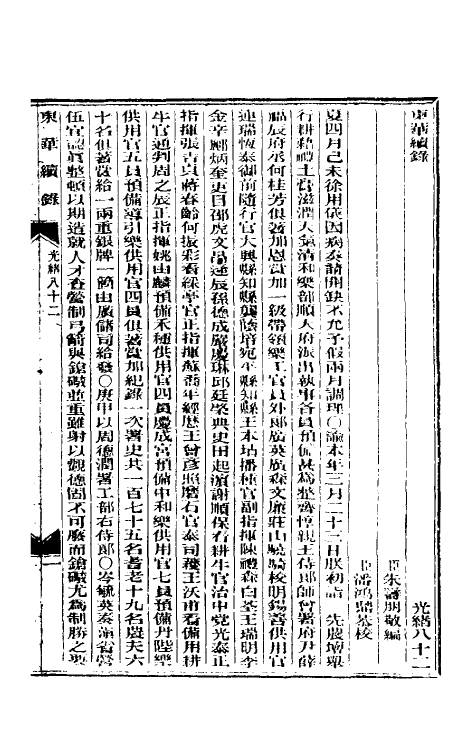 東華續錄
光緒八十二
臣朱壽朋敬編
臣潘鴻鼎恭校
夏四月己未徐用儀因病奏請開缺不允予假兩月調理○諭本年三月二十三日朕初詣 先農壇舉
行耕耤禮土膏滋潤天氣清和樂部順天府派出執事各員預備甚為整齊惇親王侍郎師曾署府尹薛
福辰府丞何桂芳俱著加恩賞加一級帶領樂工官員外郎廣英廣森文廉莊山驍騎校明錫善供用官
連瑞恆泰御前隨行官大興縣知縣龔蔭培宛平縣知縣王本坫播種官副指揮陳禮森白荃王瑞明李
金辛鄺炳奎吏目邵虎文品連辰孫德成嚴慶琳邱廷榮典史田起濱謝順保看耕牛官治中黨光泰正
指揮張吉貞蔣春齡何振彩看綵亭官正指揮蘇喬年經歷王曾彥照磨石官泰司獄王沃甫看備用耕
牛官通判周之辰正指揮姚由麟預備禾種供用官四員慶成宮預備中和樂供用官七員預備丹陛樂
供用官五員預備導引樂供用官四員俱著賞加紀錄一次署史共一百七十五名耆老十九名農夫六
十名俱著賞給一兩重銀牌一箇由廣儲司給發○庚申以周德潤署工部右侍郎○岑毓英奏滇省營
伍官認真整頓以期造就人才查營制弓箭與鎗礮並重雖射以觀德固不可廢而鎗礮尤為制勝之要
東華續錄
光緒八十二
一